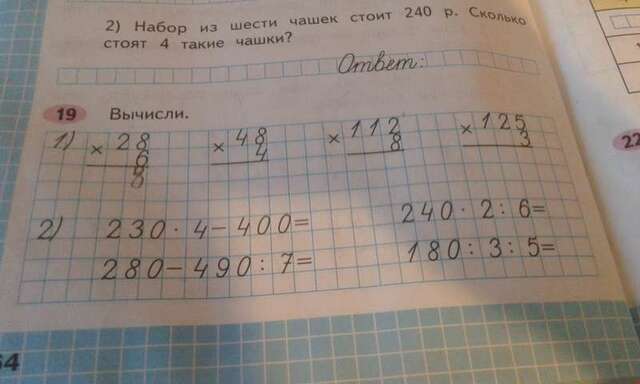 2) Набор из шести чашек стоит 240 р. Сколько
стоят 4 такие чашки?
Ответ:
19 Вычисли.
1) × 28 × 48 × 112 × 125
6 4 8 3
8
22
2) 230 · 4 – 400 = 240 · 2 : 6 =
280 – 490 : 7 = 180 : 3 : 5 =
64